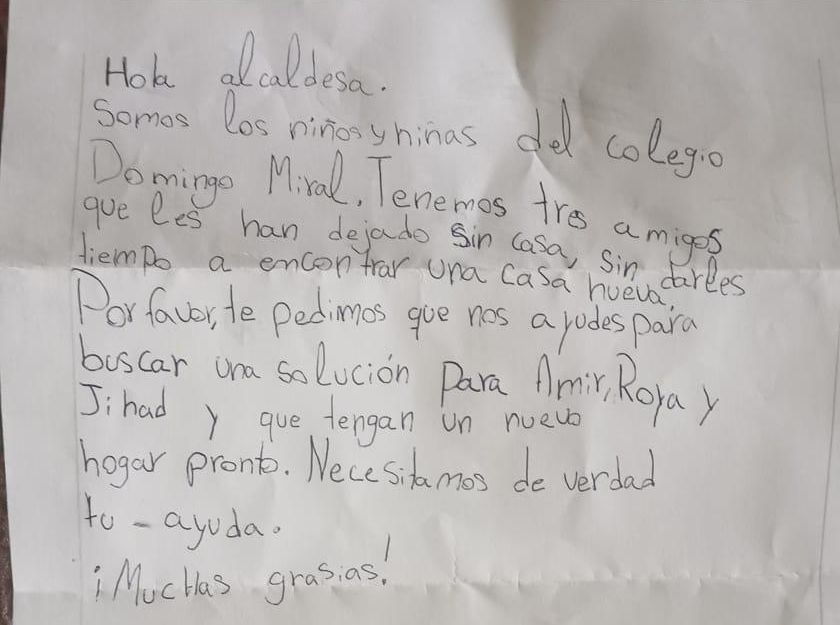 Hola alcaldesa.
Somos los niños y niñas del colegio
Domingo Miral. Tenemos tres amigos
que les han dejado sin casa, sin darles
tiempo a encontrar una casa nueva.
Por favor, te pedimos que nos ayudes para
buscar una solución para Amir, Roya y
Jihad y que tengan un nuevo
hogar pronto. Necesitamos de verdad
tu - ayuda.
¡Muchas grasias!